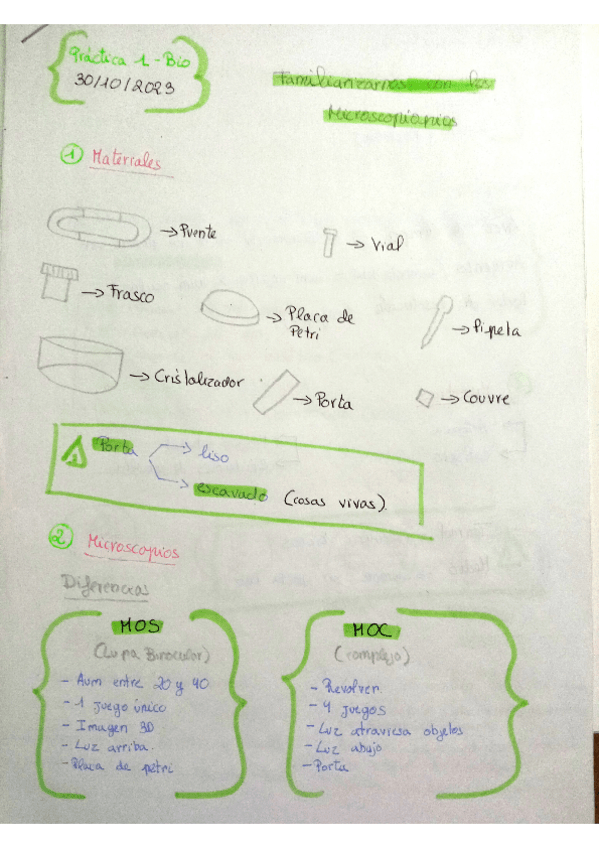 Práctica 1 - Bio
30/10/2023
Familiarizarnos con los
Microscópicos
1 Materiales
→ Puente
→ Vial
→ Frasco
→ Placa de
Petri
→ Pipeta
→ Cristalizador
→ Porta
→ Couvre
Porta → liso
→ escavado (cosas vivas).
2 Microscopios
Diferencias
MOS
(Lupa Binocular)
- Aum entre 20 y 40
- 1 juego único
- Imagen 3D
- Luz arriba.
- Placa de petri
MOC
(complejo)
- Revolver
- 4 juegos
- Luz atraviesa objetos
- Luz abajo
- Porta